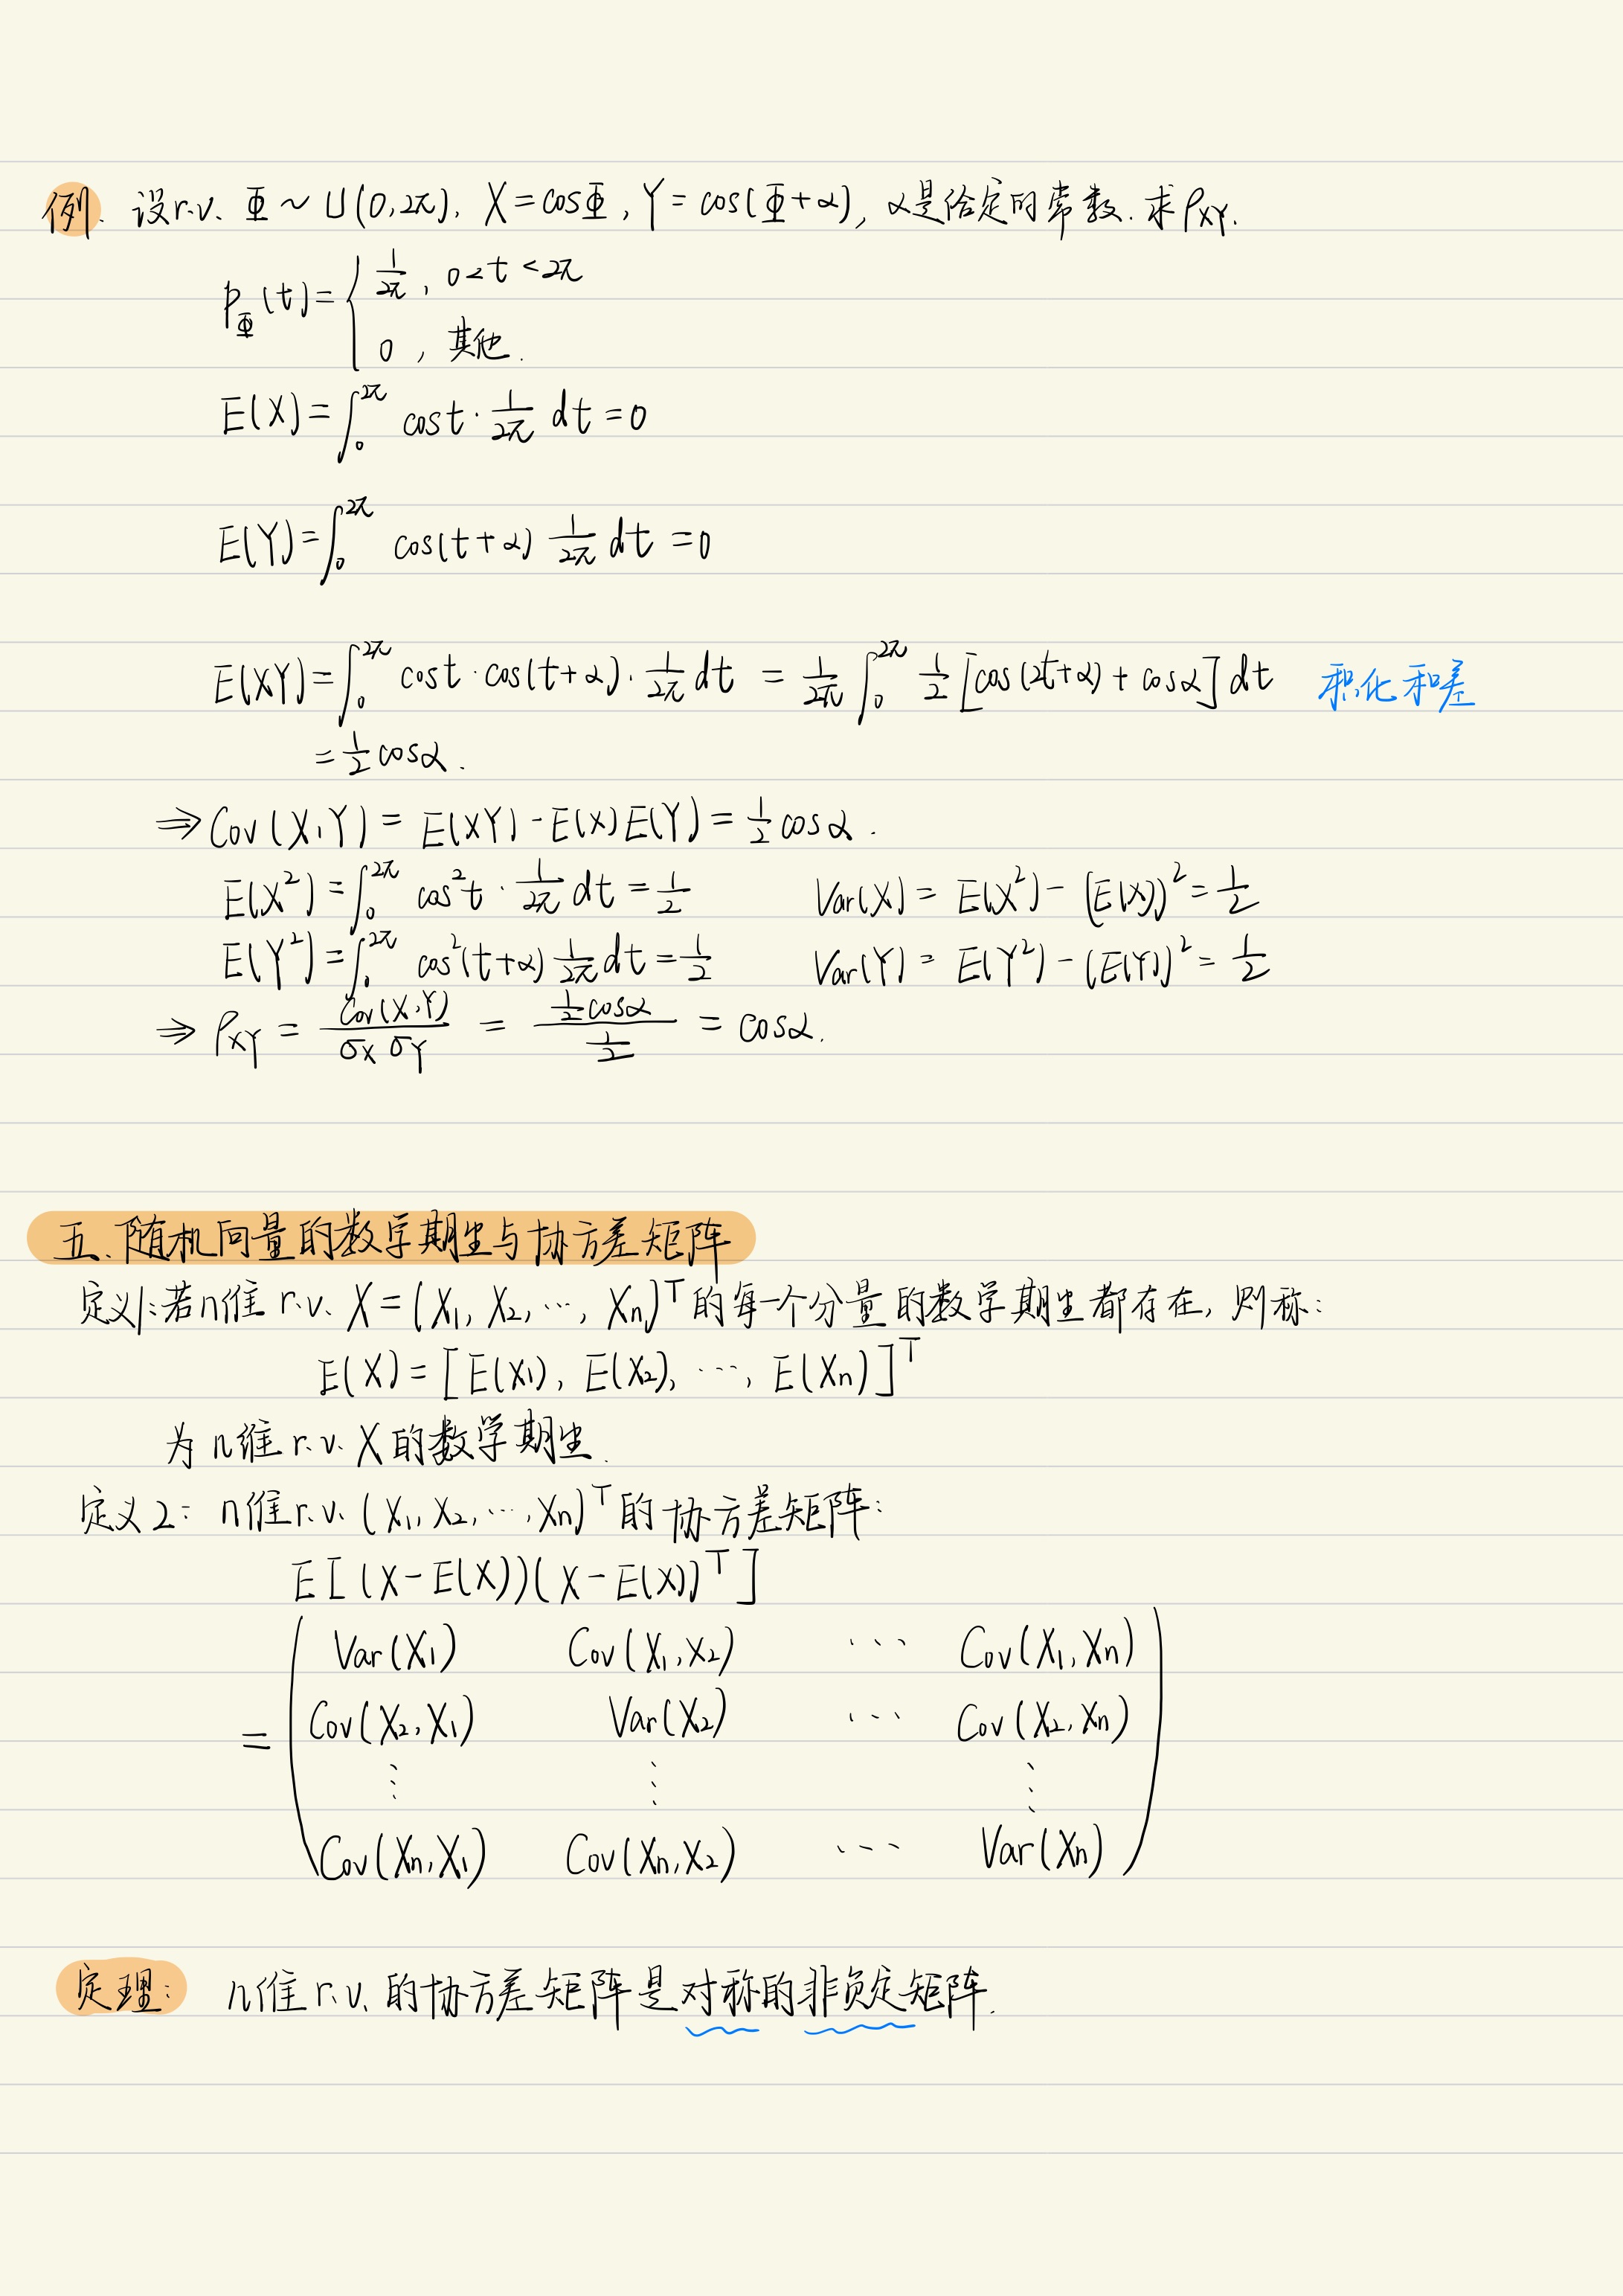 例. 设r.v. Φ ~ U(0,2π), X=cosΦ, Y=cos(Φ+α), α是给定的常数. 求ρ_XY.
p_Φ(t)={ 1/2π, 0<t<2π
0, 其他.
E(X)=∫_0^{2π} cost · 1/2π dt=0
E(Y)=∫_0^{2π} cos(t+α) 1/2π dt=0
E(XY)=∫_0^{2π} cost·cos(t+α)· 1/2π dt = 1/2π ∫_0^{2π} 1/2 [cos(2t+α)+cosα] dt 积化和差
=1/2 cosα.
⇒ Cov(X,Y) = E(XY)-E(X)E(Y) = 1/2 cosα.
E(X²)=∫_0^{2π} cos²t · 1/2π dt=1/2 Var(X)= E(X²)-(E(X))²=1/2
E(Y²)=∫_0^{2π} cos²(t+α) 1/2π dt=1/2 Var(Y)= E(Y²)-(E(Y))²=1/2
⇒ ρ_XY = Cov(X,Y)/σ_X σ_Y = 1/2 cosα / 1/2 = cosα.
五、随机向量的数学期望与协方差矩阵
定义1:若n维 r.v. X=(X₁, X₂, ⋯, Xn)ᵀ的每一个分量的数学期望都存在, 则称:
E(X)=[E(X₁), E(X₂), ⋯, E(Xn)]ᵀ
为n维r.v. X的数学期望.
定义2: n维r.v. (X₁, X₂, ⋯, Xn)ᵀ的协方差矩阵:
E[(X-E(X))(X-E(X))ᵀ]
= ( Var(X₁) Cov(X₁,X₂) ⋯ Cov(X₁,Xn)
Cov(X₂,X₁) Var(X₂) ⋯ Cov(X₂,Xn)
⋮ ⋮ ⋮
Cov(Xn,X₁) Cov(Xn,X₂) ⋯ Var(Xn) )
定理: n维r.v. 的协方差矩阵是对称的非负定矩阵.